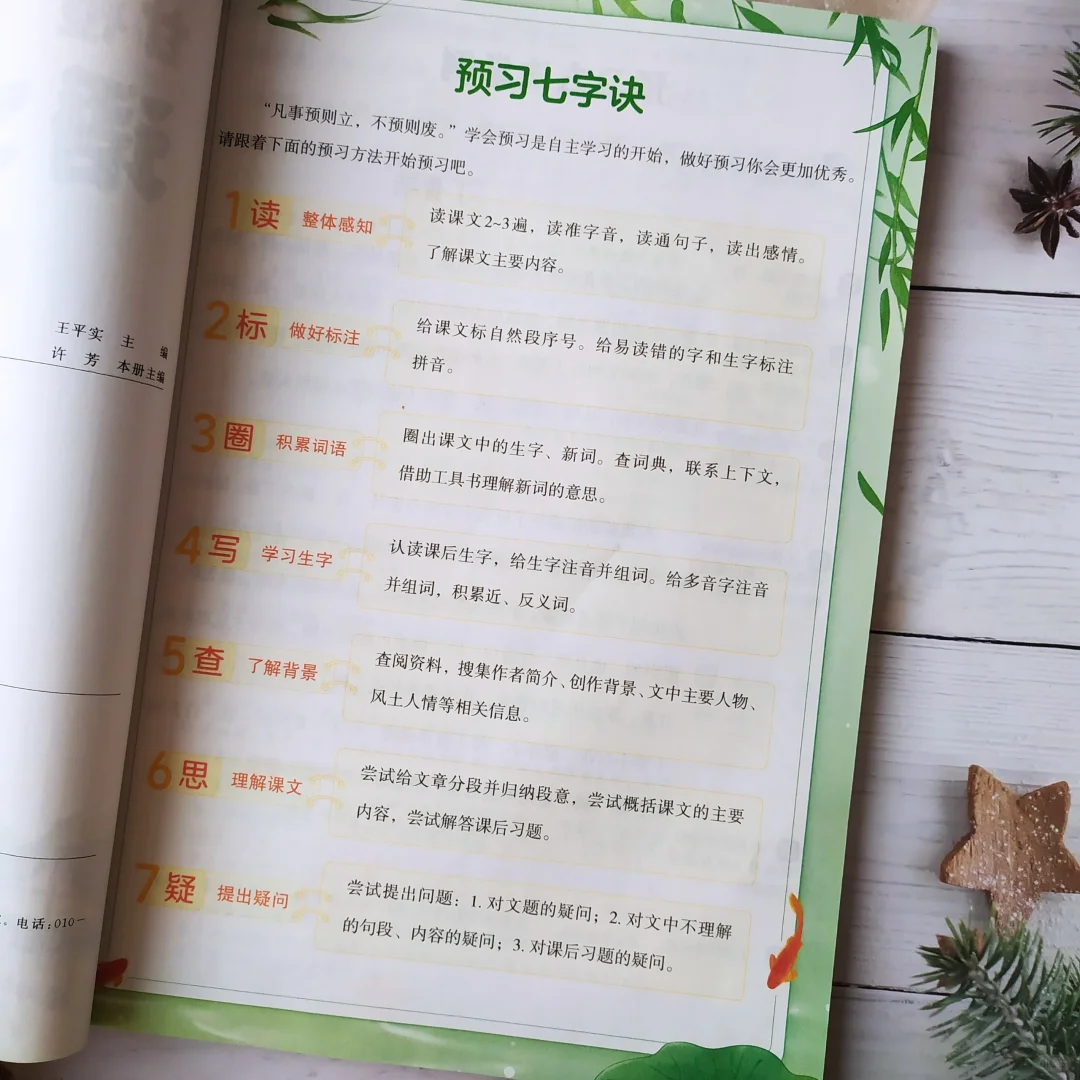 王平实 主 编
许 芳 本册主编
。电话:010-
预习七字诀
“凡事预则立，不预则废。”学会预习是自主学习的开始，做好预习你会更加优秀。
请跟着下面的预习方法开始预习吧。
1 读 整体感知
读课文2~3遍，读准字音，读通句子，读出感情。
了解课文主要内容。
2 标 做好标注
给课文标自然段序号。给易读错的字和生字标注
拼音。
3 圈 积累词语
圈出课文中的生字、新词。查词典，联系上下文，
借助工具书理解新词的意思。
4 写 学习生字
认读课后生字，给生字注音并组词。给多音字注音
并组词，积累近、反义词。
5 查 了解背景
查阅资料，搜集作者简介、创作背景、文中主要人物、
风土人情等相关信息。
6 思 理解课文
尝试给文章分段并归纳段意，尝试概括课文的主要
内容，尝试解答课后习题。
7 疑 提出疑问
尝试提出问题：1. 对文题的疑问；2. 对文中不理解
的句段、内容的疑问；3. 对课后习题的疑问。